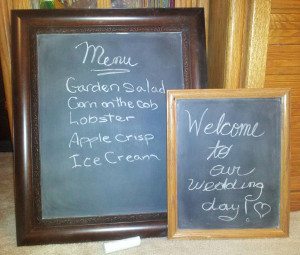 Menu
Garden Salad
Corn on the Cob
Lobster
Apple Crisp
Ice Cream
Welcome
to
our
wedding
day!